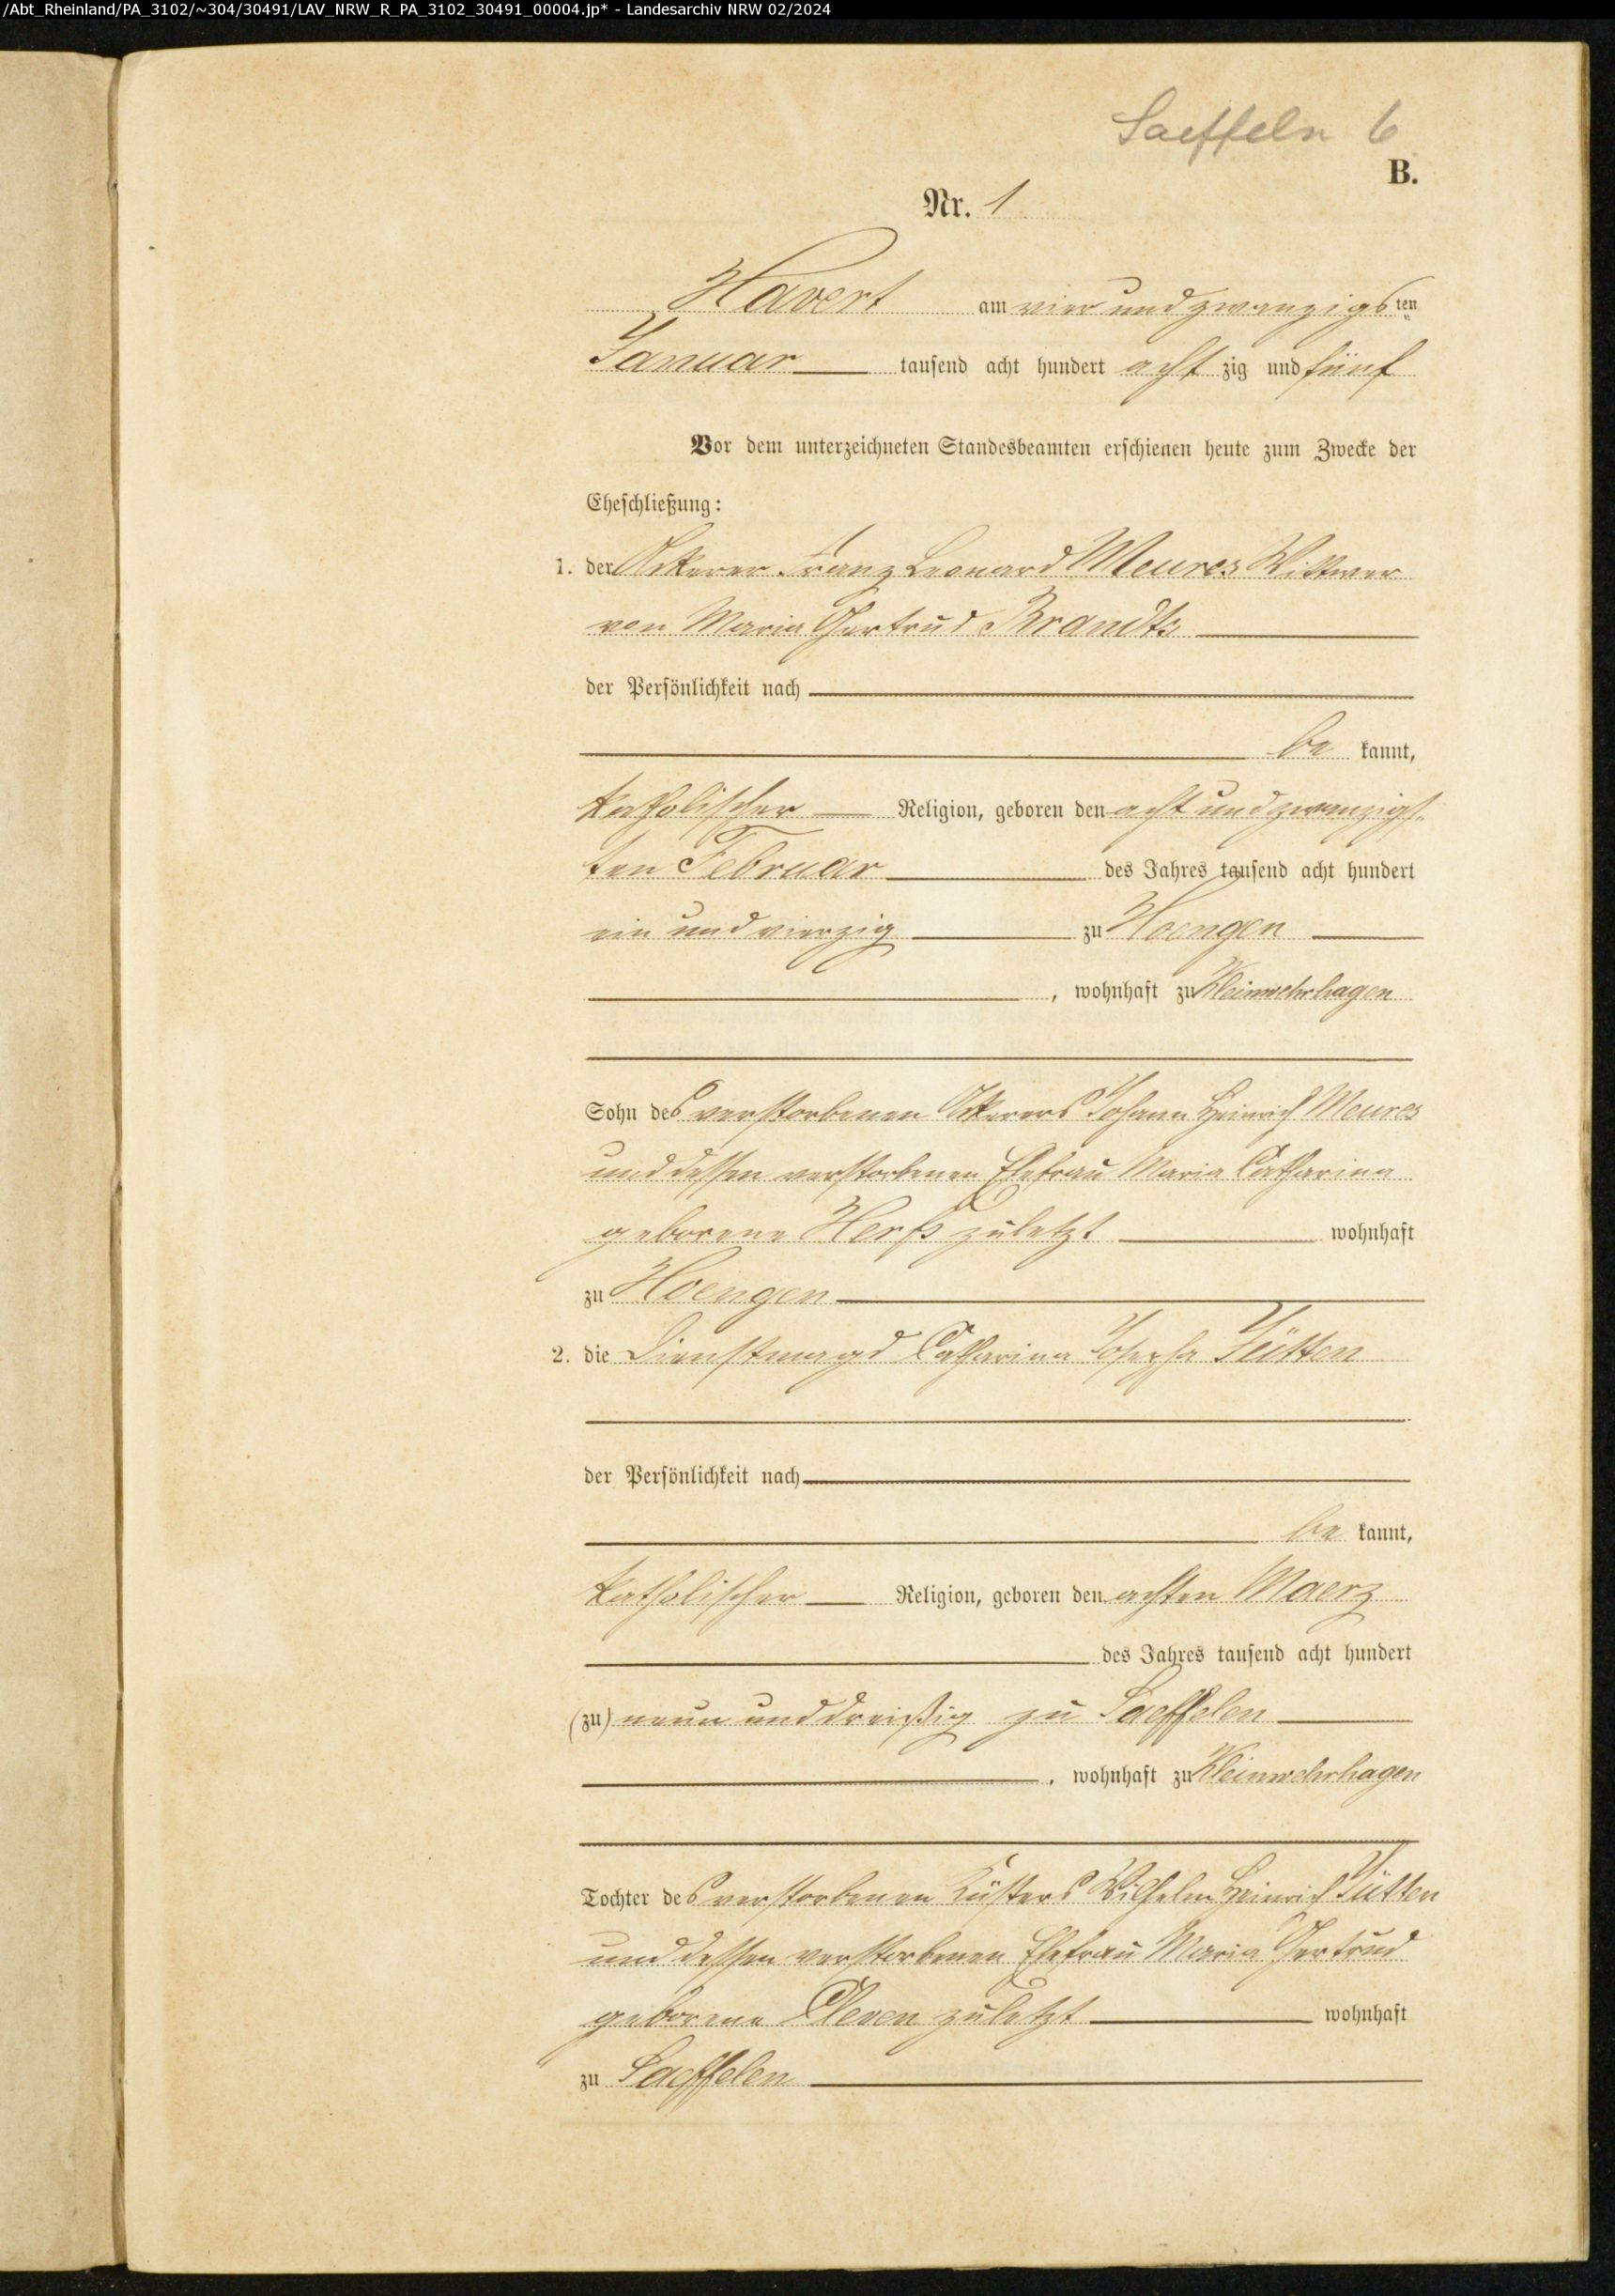 /Abt_Rheinland/PA_3102/~304/30491/LAV_NRW_R_PA_3102_30491_00004.jp* - Landesarchiv NRW 02/2024
Saeffeln 6
B.
Nr. 1
Havert am vier und zwanzigs ten
Januar tausend acht hundert acht zig und fünf
Vor dem unterzeichneten Standesbeamten erschienen heute zum Zwecke der
Eheschließung:
1. der Ackerer Franz Leonard Meures Wittwer
von Maria Gertrud Brandts
der Persönlichkeit nach
be kannt,
katholischer Religion, geboren den acht und zwanzigs-
ten Februar des Jahres tausend acht hundert
ein und vierzig zu Hoengen
, wohnhaft zu Kleinwehrhagen
Sohn des verstorbenen Ackerers Johann Heinrich Meures
und dessen verstorbenen Ehefrau Maria Catharina
geborene Herfs zuletzt wohnhaft
zu Hoengen
2. die Dienstmagd Catharina Josepha Jütten
der Persönlichkeit nach
be kannt,
katholischer Religion, geboren den achten Maerz
des Jahres tausend acht hundert
(zu) neun und dreißig zu Saeffelen
, wohnhaft zu Kleinwehrhagen
Tochter des verstorbenen Küsters Wilhelm Heinrich Jütten
und dessen verstorbenen Ehefrau Maria Gertrud
geborene Cleven zuletzt wohnhaft
zu Saeffelen